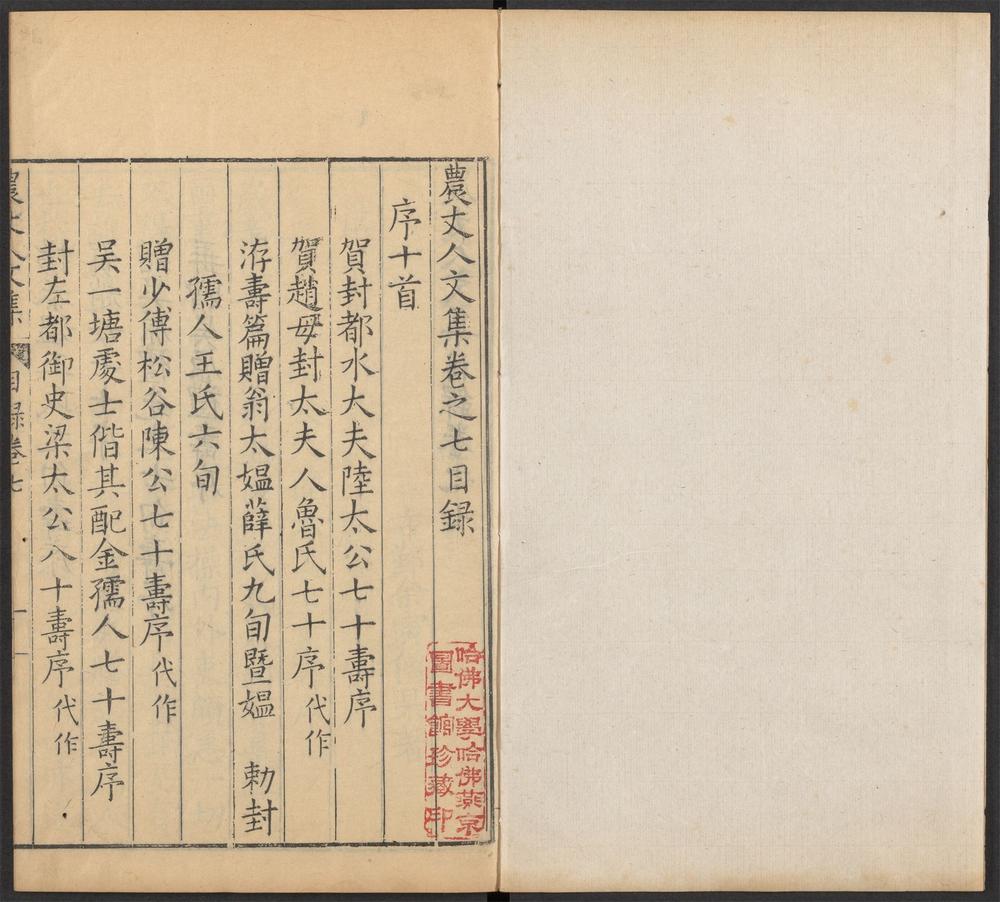 農丈人文集卷之七目録
序十首
賀封都水大夫陸太公七十壽序
賀趙母封太夫人魯氏七十序代作
洊壽篇贈翁太媼薛氏九旬暨媼 勅封
孺人王氏六旬
贈少傅松谷陳公七十壽序代作
吴一塘處士偕其配金孺人七十壽序
封左都御史梁太公八十壽序代作
農丈人文集 目録卷七 一
哈佛大學哈佛燕京
圖書館珍藏印